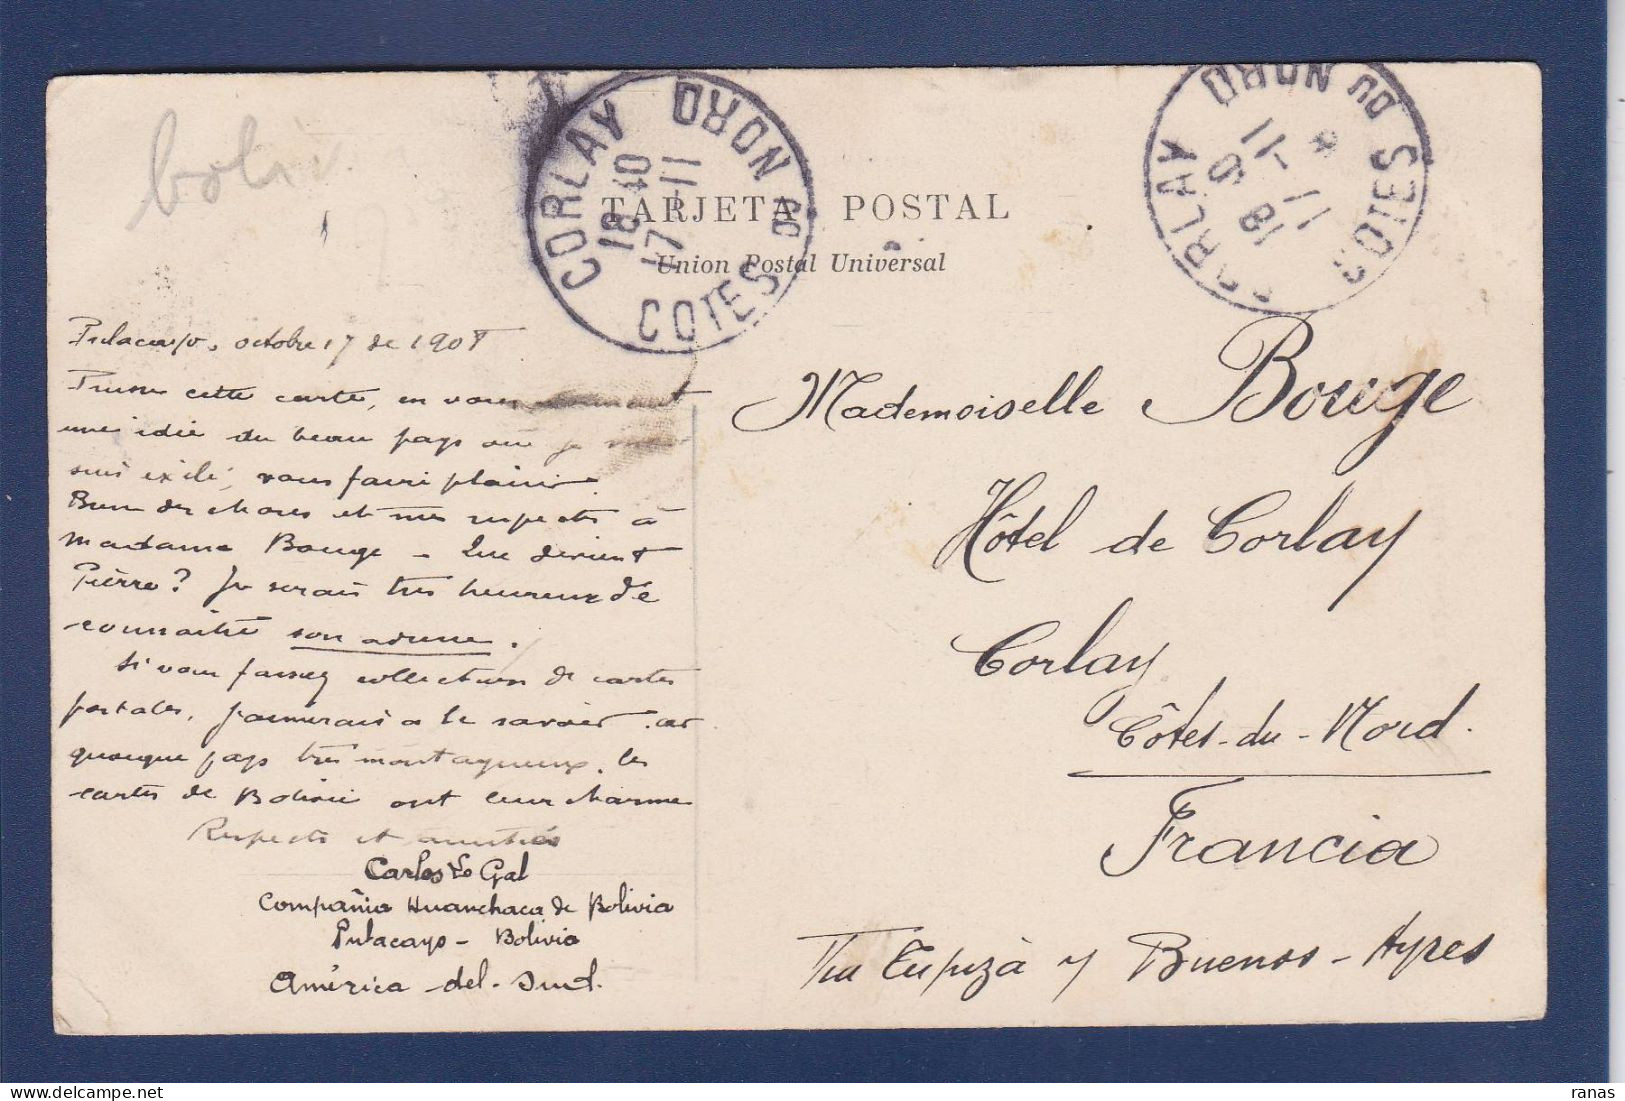 boliv.
CORLAY
COTES DU NORD
18 40
17 -11
CORLAY
COTES DU NORD
11
18
11
TARJETA POSTAL
Union Postal Universal
Pulacayo, octobre 17 de 1908
Puisse cette carte, en vous donnant
une idée du beau pays où je
suis exilé, vous faire plaisir.
Bien des choses et mes respects à
Madame Bouge - Que devient
Pierre? Je serais très heureux de
connaître son adresse.
Si vous faisiez collection de cartes
postales, j'aimerais à le savoir, car
quoique pays très montagneux, les
cartes de Bolivie ont leur charme
Respects et amitiés
Carlos Le Gal
Compañia Huanchaca de Bolivia
Pulacayo - Bolivia
América - del - Sud.
Mademoiselle Bouge
Hôtel de Corlay
Corlay
Côtes-du-Nord.
Francia
Via Tupiza y Buenos-Ayres
ranas